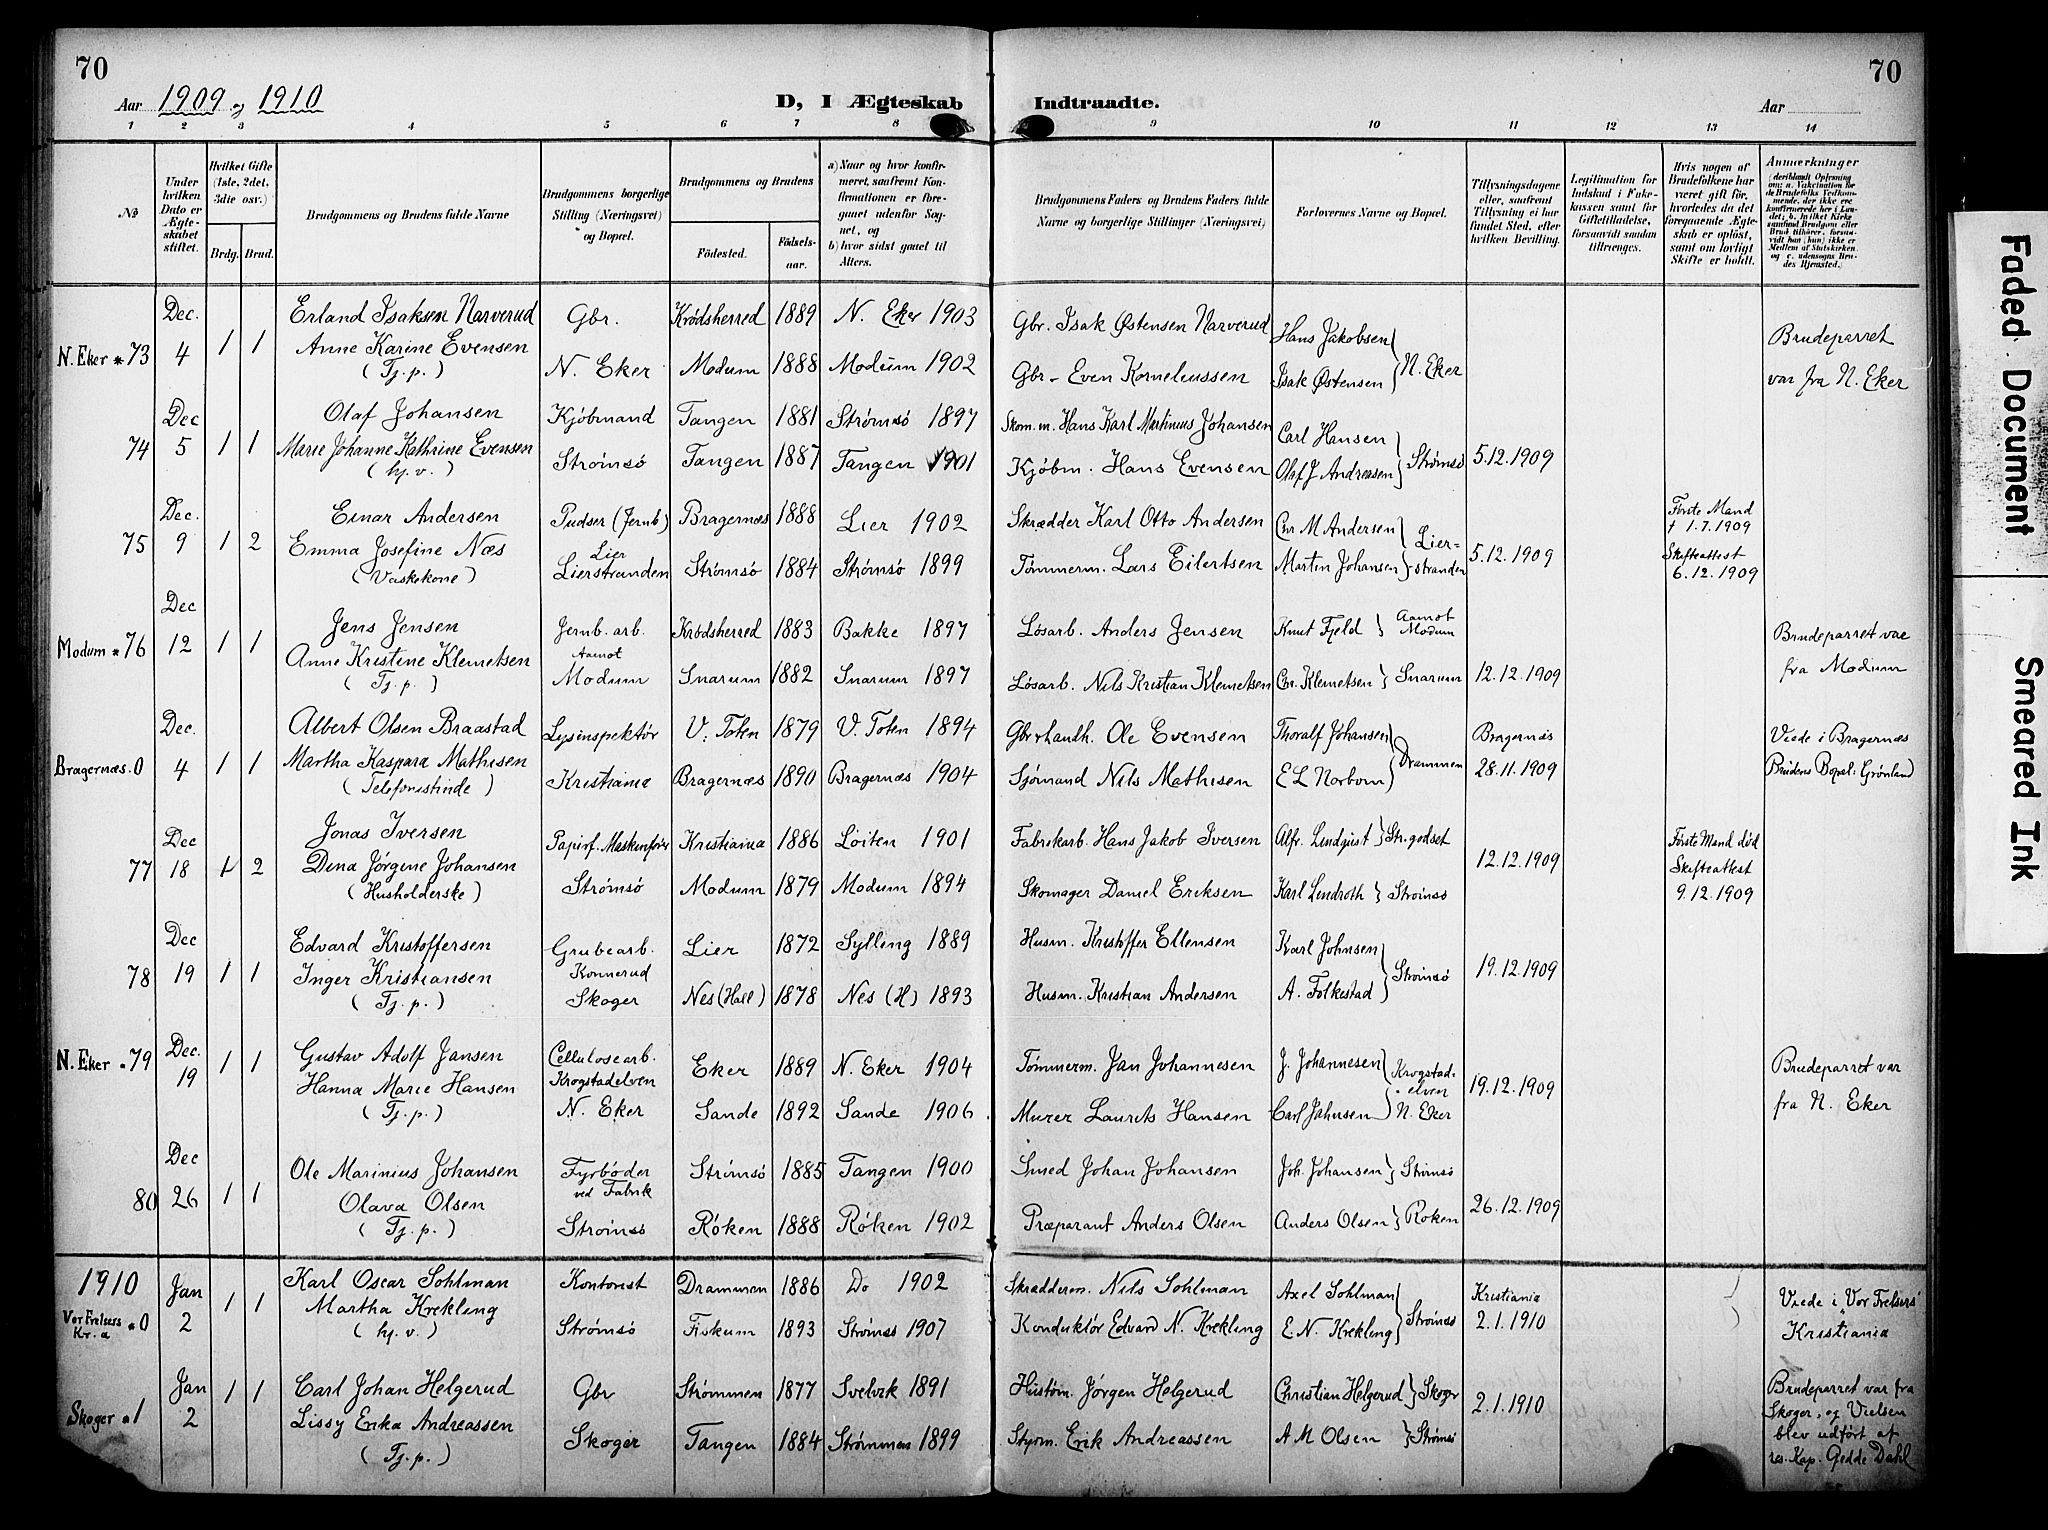 70
70
Aar 1909 og 1910
D, I Ægteskab Indtraadte.
Aar
1 2 3 4 5 6 7 8 9 10 11 12 13 14
No
Under hvilken Dato er Ægteskabet stiftet.
Hvilket Gifte (1ste, 2det, 3die osv.)
Brdg. Brud.
Brudgommens og Brudens fulde Navne
Brudgommens borgerlige Stilling (Næringsvei) og Bopæl.
Brudgommens og Brudens
Födested.
Födselsaar.
a) Naar og hvor konfirmeret, saafremt Konfirmationen er foregaaet udenfor Sognet, og
b) hvor sidst gaaet til Alters.
Brudgommens Faders og Brudens Faders fulde Navne og borgerlige Stillinger (Næringsvei)
Forlovernes Navne og Bopæl.
Tillysningsdagene eller, saafremt Tillysning ei har fundet Sted, efter hvilken Bevilling.
Legitimation for Indskud i Enkekassen samt for Giftetilladelse, forsaavidt saadan tiltrænges.
Hvis nogen af Brudefolkene har været gift för, hvorledes da det foregaaende Ægteskab er oplöst, samt om lovligt Skifte er holdt.
Anmerkninger (deriblandt Oplysning om: a. Vakcination for de Brudefolks Vedkommende, der ikke ere konfirmerede her i Landet; b. hvilket Kirkesamfund Brudgom eller Brud tilhörer, forsaavidt han (hun) ikke er Medlem af Statskirken, og c. udensogns Brudes Hjemsted.)
N. Eker 73 Dec. 4 1 1
Erland Isaksen Narverud Gbr. Krødsherred 1889 N. Eker 1903 Gbr. Isak Østensen Narverud Hans Jakobsen
Anne Karine Evensen (Tj. p.) N. Eker Modum 1888 Modum 1902 Gbr. Even Korneliussen Isak Østensen N. Eker
Brudeparret var fra N. Eker
74 Dec 5 1 1
Olaf Johansen Kjøbmand Tangen 1881 Strømsö 1897 Skom. m. Hans Karl Martinius Johansen Carl Hansen
Marie Johanne Kathrine Evensen (hj. v.) Strømsö Tangen 1887 Tangen 1901 Kjöbm. Hans Evensen Olaf J Andreasen Strømsö 5.12.1909
75 Dec. 9 1 2
Einar Andersen Pudser (Jernb) Bragernæs 1888 Lier 1902 Skrædder Karl Otto Andersen Chr. M Andersen
Emma Josefine Næs (Vaskekone) Lier Lierstranden Strømsö 1884 Strømsö 1899 Tømmerm. Lars Eilertsen Martin Johansen Lier-stranden 5.12.1909
Første Mand † 1.7.1909
Skifteattest 6.12.1909
Modum 76 Dec 12 1 1
Jens Jensen Jernb. arb. Krødsherred 1883 Bakke 1897 Løsarb. Anders Jensen Knut Fjeld Aamot Modum
Anne Kristine Klemetsen (Tj. p.) Aamot Modum Snarum 1882 Snarum 1897 Løsarb. Nils Kristian Klemetsen Chr. Klemetsen Snarum 12.12.1909
Brudeparret var fra Modum
Bragernæs. 0 Dec. 4 1 1
Albert Olsen Braastad Lysinspektør V. Toten 1879 V. Toten 1894 Gbrhandh. Ole Evensen Thoralf Johansen Bragernæs
Martha Kaspara Mathisen (Telefonistinde) Kristiania Bragernæs 1890 Bragernæs 1904 Sjömand Nils Mathisen E L Norbom Drammen 28.11.1909
Viede i Bragernæs
Brudens Bopæl: Grønland
77 Dec 18 1 2
Jonas Iversen Papirf. Maskinfører Kristiania 1886 Löiten 1901 Fabrikarb. Hans Jakob Iversen Alfr. Lindquist Str. godset
Dina Jørgine Johansen (Husholderske) Strømsö Modum 1879 Modum 1894 Skomager Daniel Eriksen Karl Lindroth Strömsö 12.12.1909
Første Mand död
Skifteattest 9.12.1909
78 Dec 19 1 1
Edvard Kristoffersen Grubearb. Lier 1872 Sylling 1889 Husm. Kristoffer Ellensen Karl Johnsen
Inger Kristiansen (Tj. p.) Konnerud Skoger Nes (Hall) 1878 Nes (H) 1893 Husm. Kristian Andersen A. Folkestad Strömsö 19.12.1909
N. Eker 79 Dec. 19 1 1
Gustav Adolf Jansen Cellulosearb. Eker 1889 N. Eker 1904 Tømmerm. Jan Johannesen J. Johannesen
Hanna Marie Hansen (Tj. p.) Krogstadelven N. Eker Sande 1892 Sande 1906 Murer Laurits Hansen Carl Jahnsen Krogstadelven N. Eker 19.12.1909
Brudeparret var fra N. Eker
80 Dec 26 1 1
Ole Marinius Johansen Fyrböder ved Fabrik Strømsö 1885 Tangen 1900 Smed Johan Johansen Joh. Johansen Strömsö
Olava Olsen (Tj. p.) Strömsö Röken 1888 Röken 1902 Præparant Anders Olsen Anders Olsen Roken 26.12.1909
1910
Vor Frelsers Kr.a 0 Jan 2 1 1
Karl Oscar Sohlman Kontorist Drammen 1886 Do 1902 Skrædderm. Nils Sohlman Axel Sohlman Kristiania
Martha Krekling (hj. v.) Strømsö Fiskum 1893 Strømsö 1907 Konduktör Edvard N. Krekling E. N. Krekling Strömsö 2.1.1910
Viede i "Vor Frelsers" Kristiania
Skoger 1 Jan 2 1 1
Carl Johan Helgerud Gbr Strömmen 1877 Svelvik 1891 Hustöm. Jörgen Helgerud Christian Helgerud Skoger
Lissy Erika Andreassen (Tj. p.) Skoger Tangen 1884 Strömmen 1899 Styrm. Erik Andreassen A M Olsen Strömsö 2.1.1910
Brudeparret var fra Skoger, og Vielsen blev udfört af res. Kap. Gedde Dahl
Faded Document
Smeared Ink